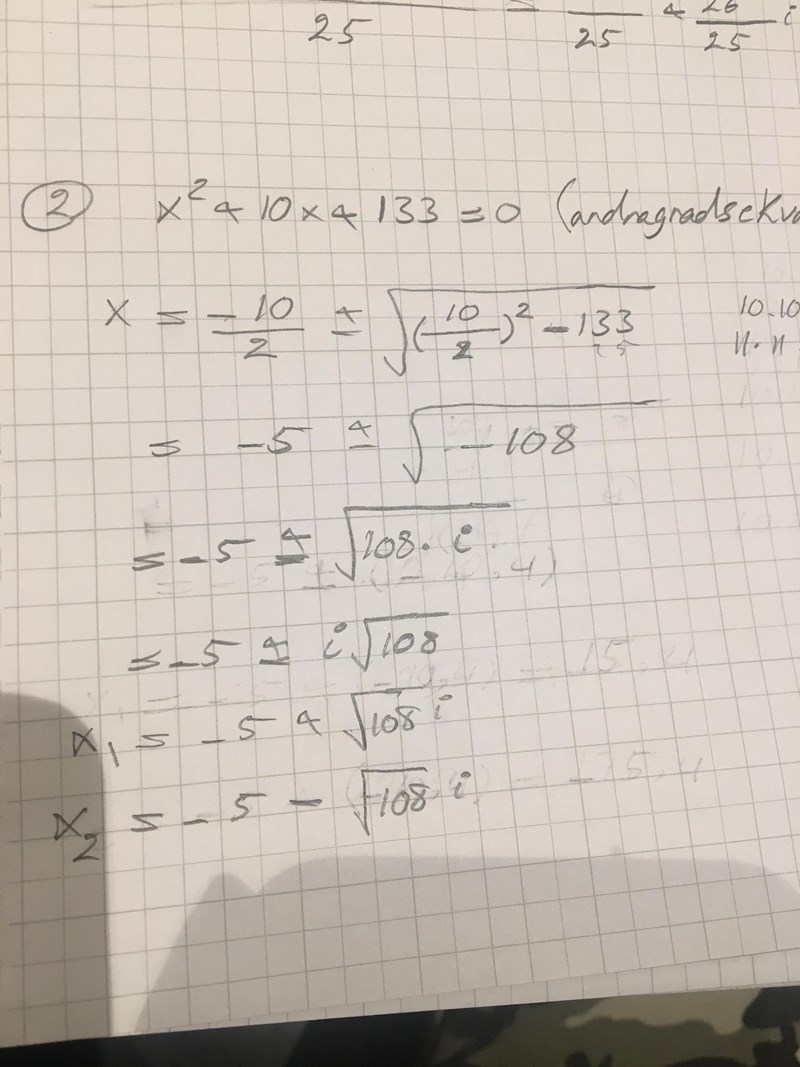 25 = 25 + 26/25 i
② x² + 10x + 133 = 0 (andragradsekva
x = -10/2 ± √((10/2)² - 133) 10.10
25 11.11
= -5 ± √-108
= -5 ± √108 · i
= -5 ± i√108
x₁ = -5 + √108 i
x₂ = -5 - √108 i